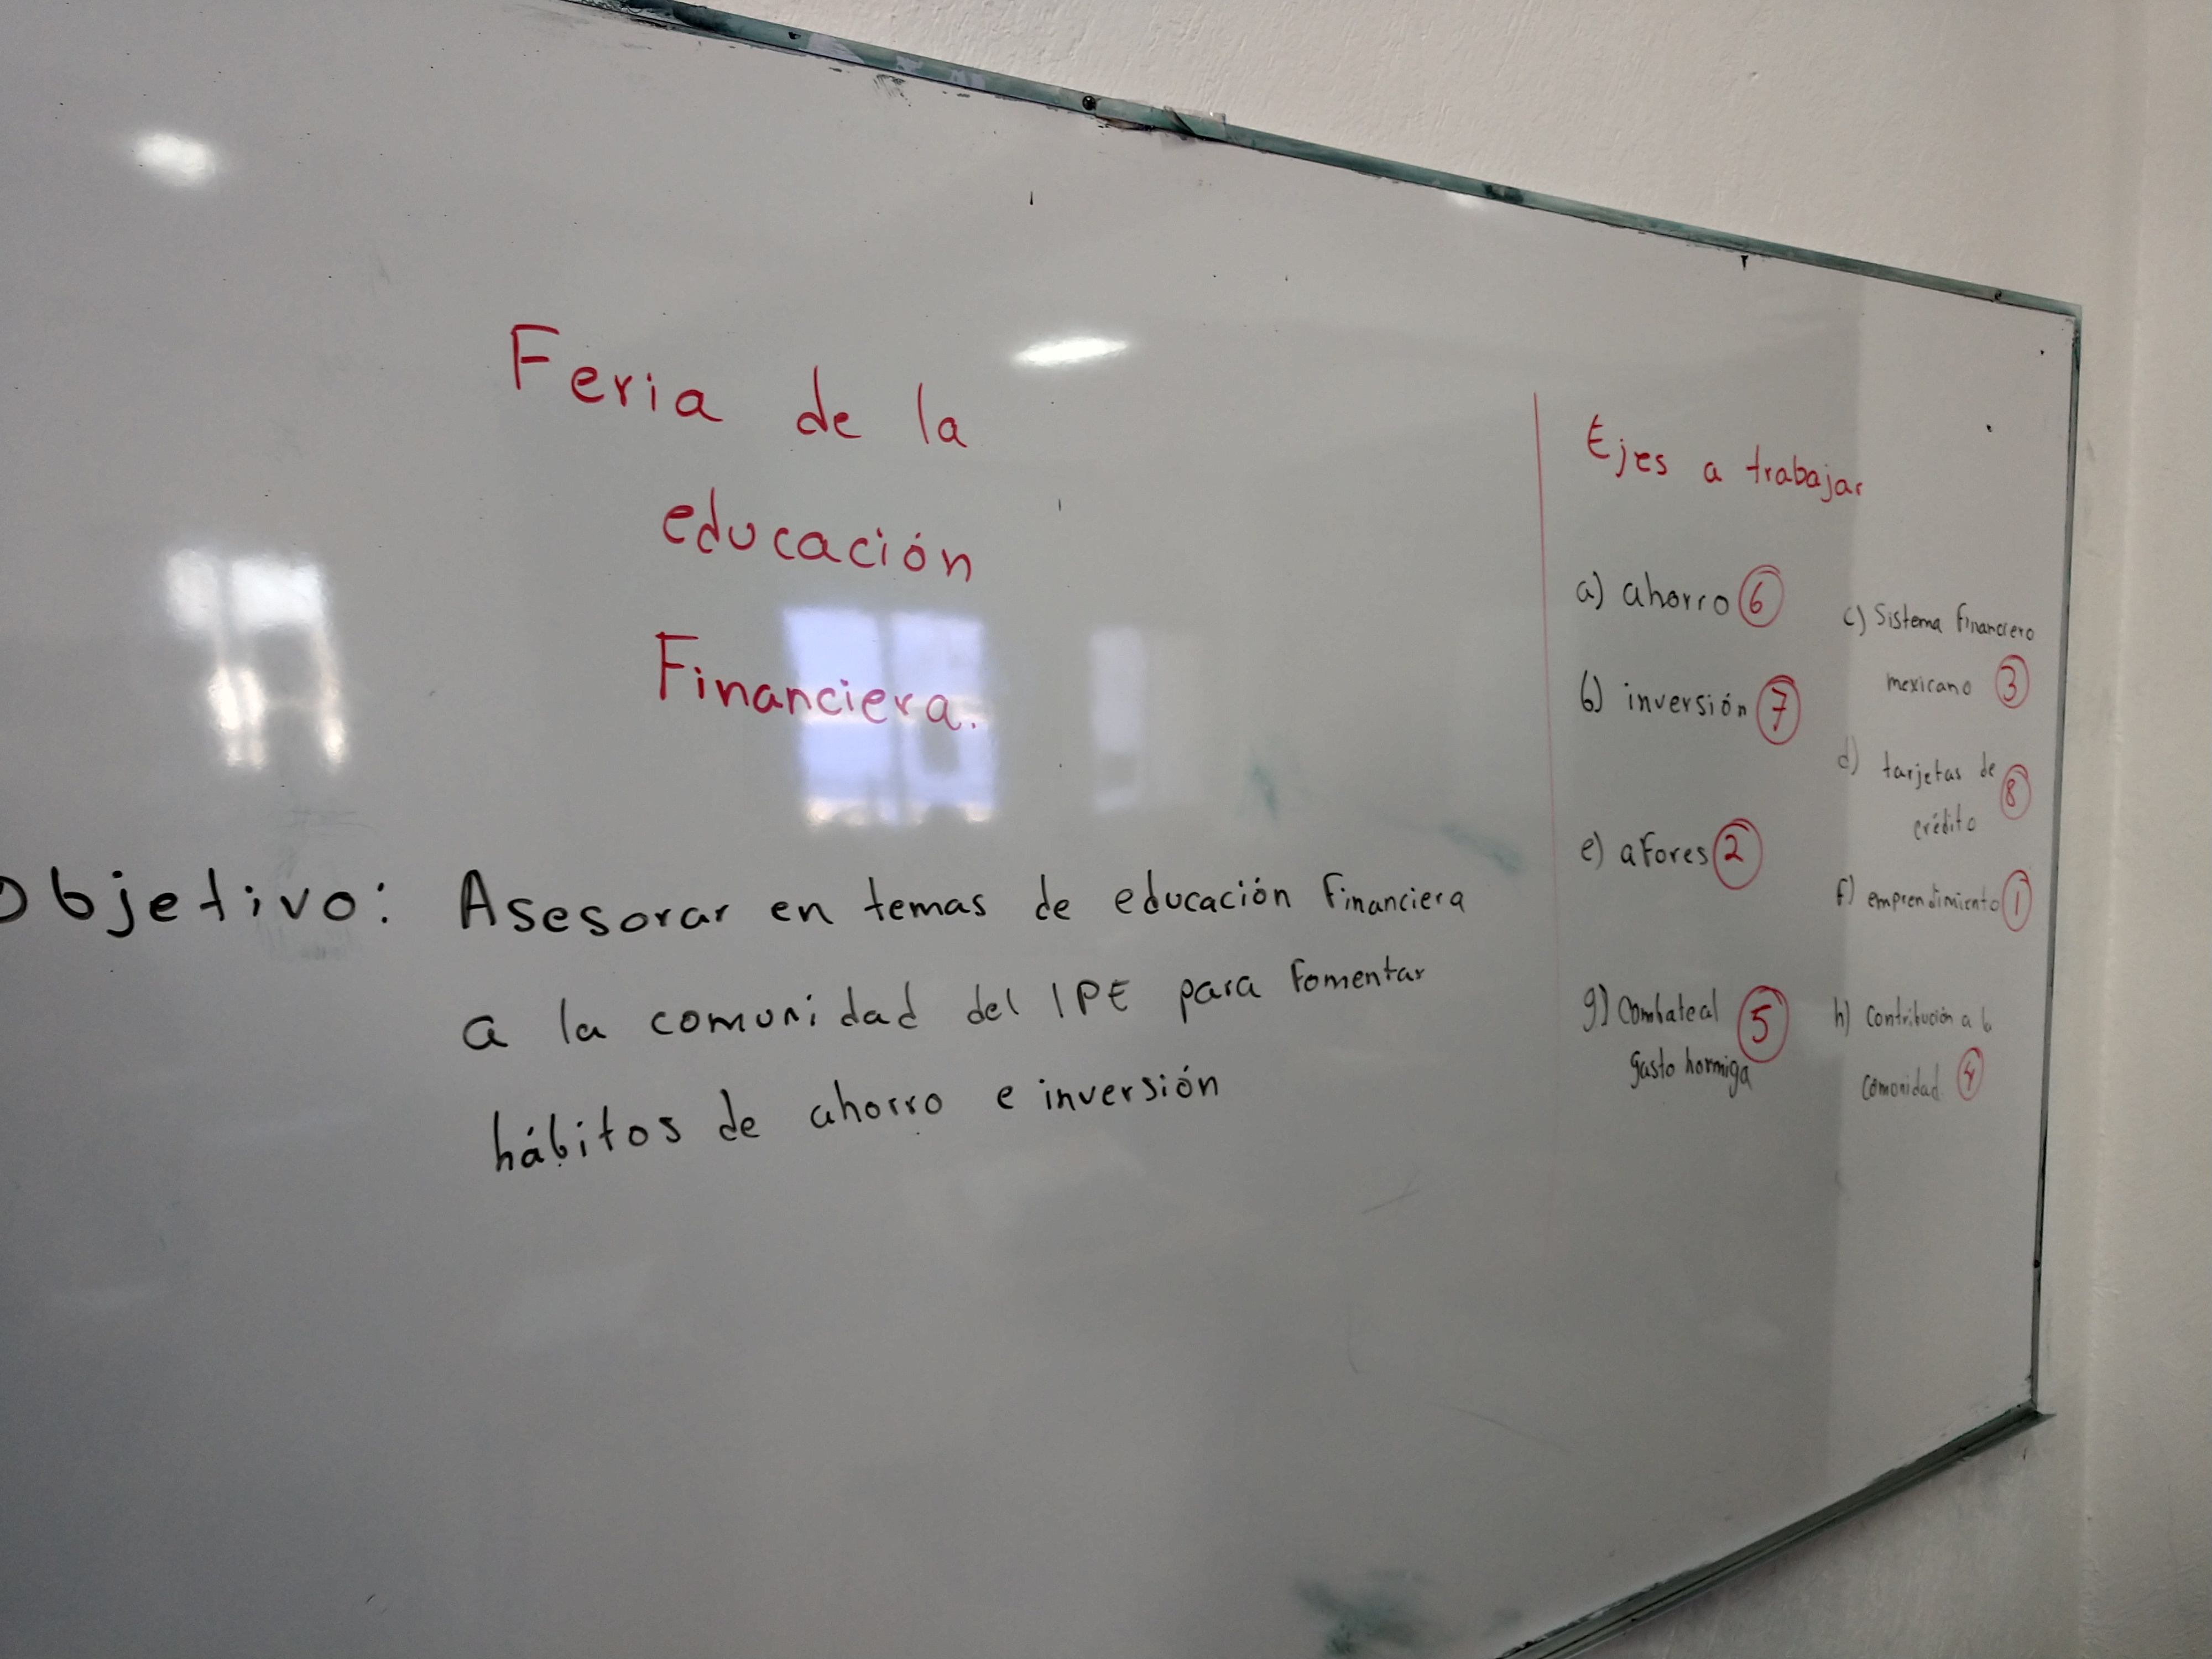 Feria de la
educación
Financiera.
Objetivo: Asesorar en temas de educación Financiera
a la comunidad del IPE para Fomentar
hábitos de ahorro e inversión
Ejes a trabajar
a) ahorro 6
b) inversión 7
c) Sistema Financiero
mexicano 3
d) tarjetas de
crédito 8
e) aFores 2
f) emprendimiento 1
g) Combate al
gasto hormiga 5
h) Contribución a la
comunidad. 4